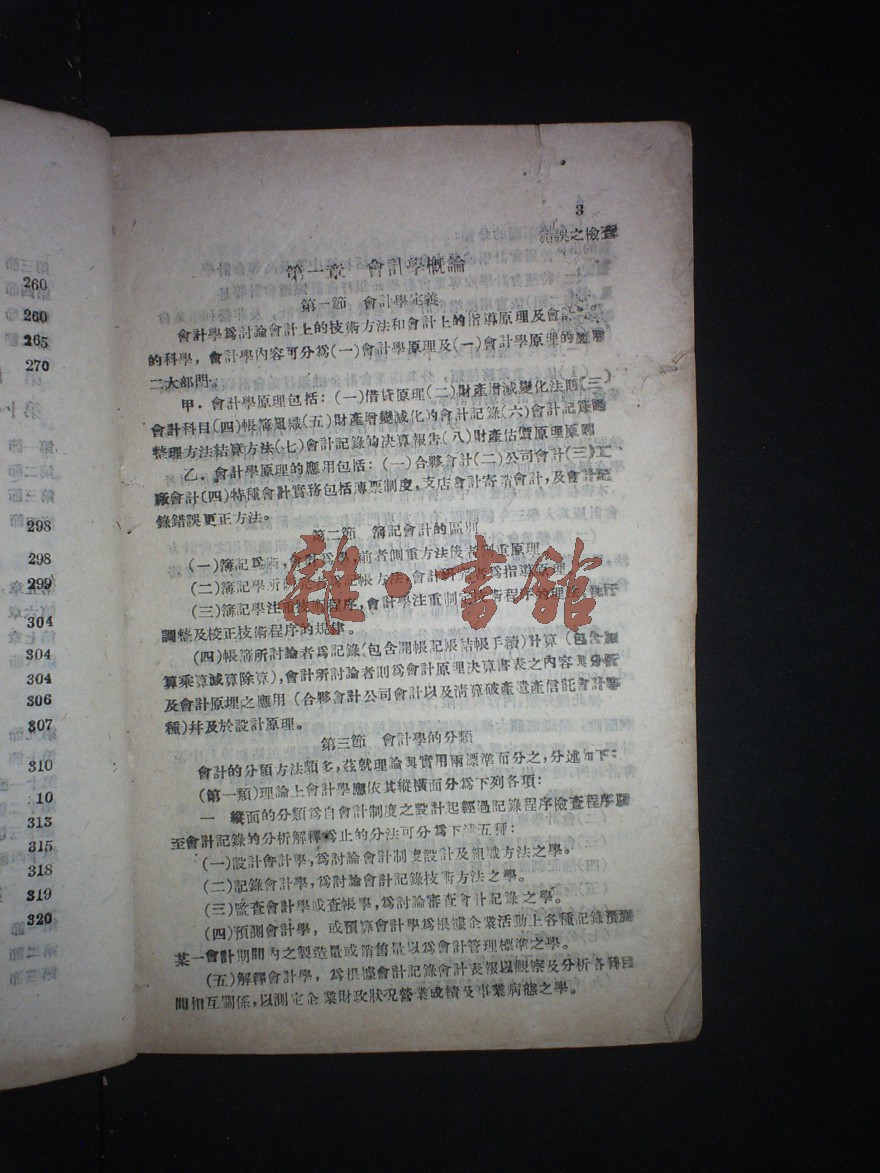 260
260
265
270
298
298
299
304
304
304
306
307
310
10
313
315
318
319
320
3
錯誤之檢查
第一章 會計學概論
第一節 會計學定義
會計學爲討論會計上的技術方法和會計上的指導原理及會計
的科學，會計學內容可分爲(一)會計學原理及(一)會計學原理的應用
二大部門。
甲．會計學原理包括：(一)借貸原理(二)財產增減變化法則(三)
會計科目(四)帳簿組織(五)財產增變減化的會計記錄(六)會計記錄的
整理方法結算方法(七)會計記錄的决算報告(八)財產估價原理原則
乙．會計學原理的應用包括：(一)合夥會計(二)公司會計(三)工
廠會計(四)特種會計實務包括傳票制度，支店會計寄銷會計，及會計記
錄錯誤更正方法。
第二節 簿記會計的區別
(一)簿記爲術，會計爲學，前者側重方法後者側重原理
(二)簿記學所 記帳方法，會計 者爲指導原理
(三)簿記學注重技術程序，會計學注重制定技術程序的理
調整及校正技術程序的規律。
(四)帳簿所討論者爲記錄(包含開帳記帳結帳手續)計算(包含
算乘算減算除算)，會計所討論者則爲會計原理决算書表之內容及分析
及會計原理之應用(合夥會計公司會計以及淸算破產遺產信託會計等
種)幷及於設計原理。
第三節 會計學的分類
會計的分類方法頗多，茲就理論與實用兩標準而分之，分述如下：
(第一類)理論上會計學應依其縱橫而分爲下列各項：
一 縱面的分類爲自會計制度之設計起經過記錄程序檢查程序
至會計記錄的分析解釋爲止的分法可分爲下述五種：
(一)設計會計學，爲討論會計制度設計及組織方法之學。
(二)記錄會計學，爲討論會計記錄技術方法之學。
(三)監查會計學或查帳學，爲討論審查會計記錄之學。
(四)預測會計學，或預算會計學爲根據企業活動上各種記錄預測
某一會計期間內之製造量或銷售量以爲會計管理標準之學。
(五)解釋會計學，爲根據會計記錄會計表報以觀察及分析各科目
間相互關係，以測定企業財政狀況營業成績及事業病態之學。
雜·書館